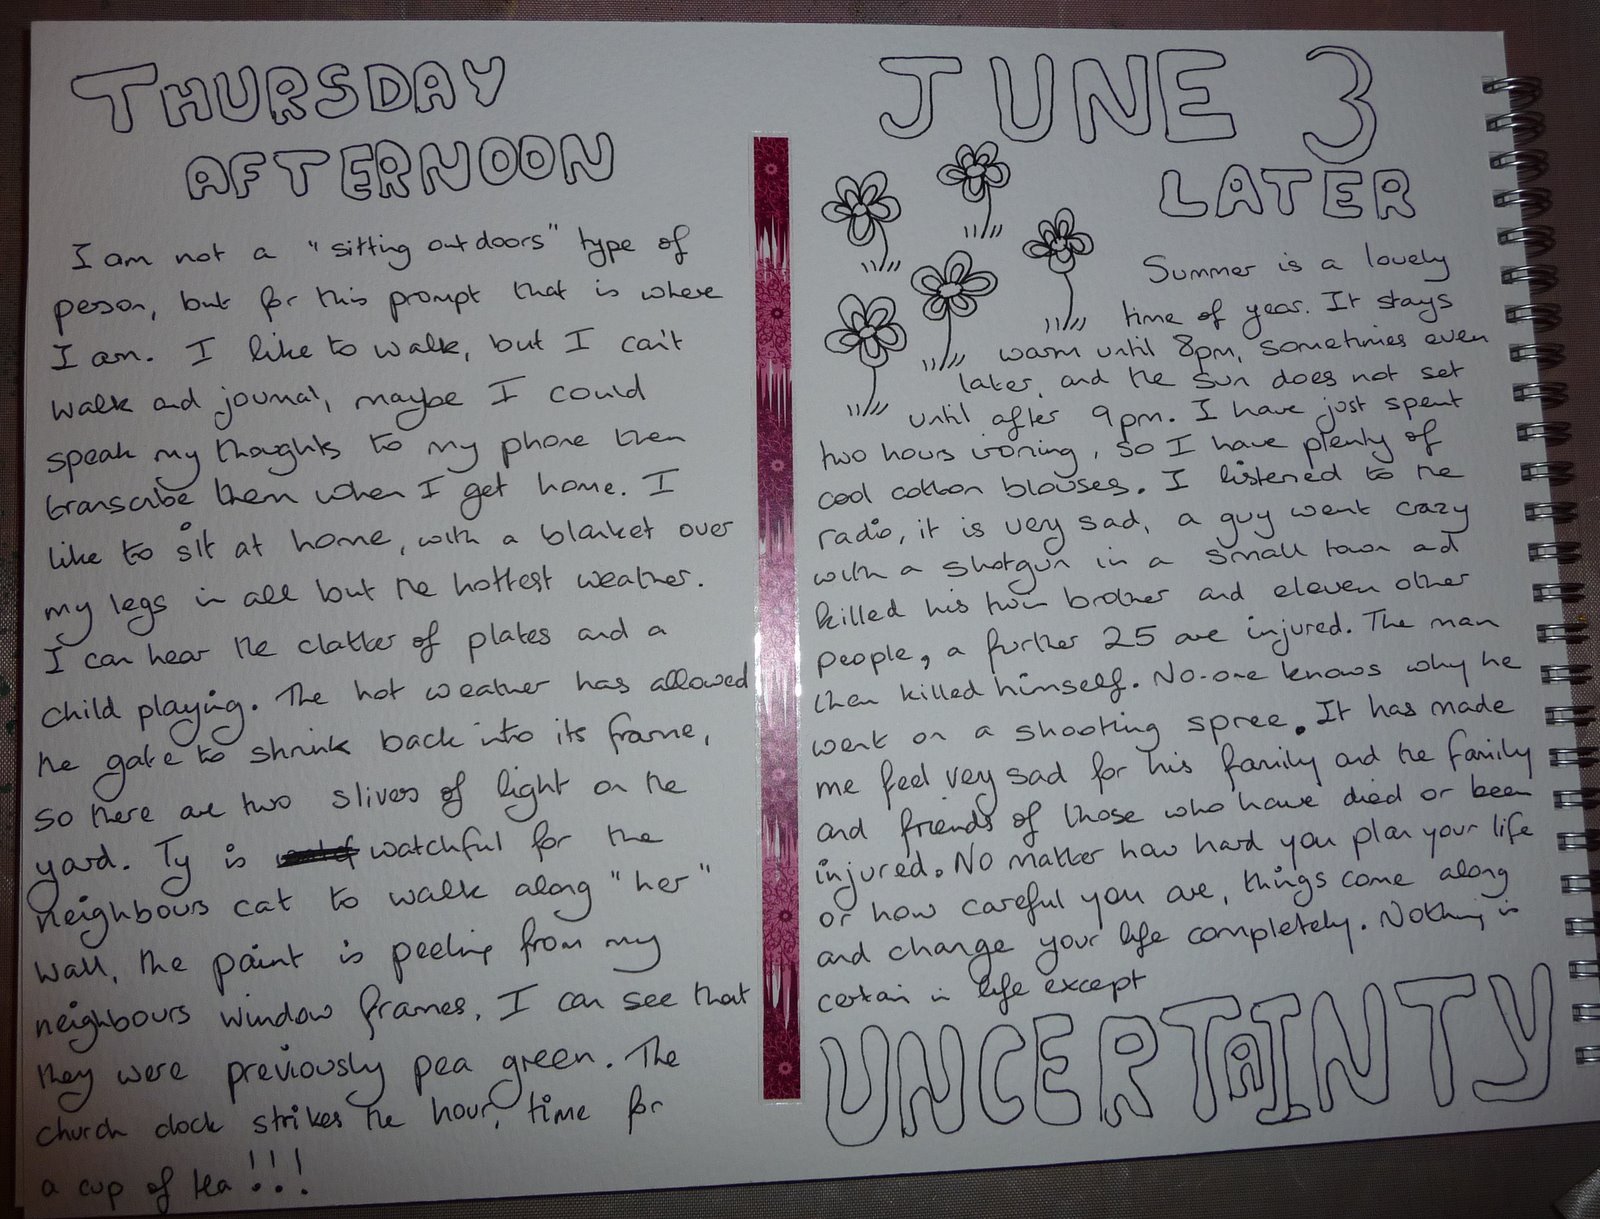 THURSDAY
AFTERNOON
I am not a "sitting outdoors" type of
person, but for this prompt that is where
I am. I like to walk, but I can't
walk and journal, maybe I could
speak my thoughts to my phone then
transcribe them when I get home. I
like to sit at home, with a blanket over
my legs in all but the hottest weather.
I can hear the clatter of plates and a
child playing. The hot weather has allowed
the gate to shrink back into its frame,
so there are two slivers of light on the
yard. Ty is watchful for the
neighbours cat to walk along "her"
wall, the paint is peeling from my
neighbours window frames, I can see that
they were previously pea green. The
church clock strikes the hour, time for
a cup of tea!!!
JUNE 3
LATER
Summer is a lovely
time of year. It stays
warm until 8pm, sometimes even
later, and the sun does not set
until after 9pm. I have just spent
two hours ironing, so I have plenty of
cool cotton blouses. I listened to the
radio, it is very sad, a guy went crazy
with a shotgun in a small town and
killed his twin brother and eleven other
people, a further 25 are injured. The man
then killed himself. No-one knows why he
went on a shooting spree. It has made
me feel very sad for his family and the family
and friends of those who have died or been
injured. No matter how hard you plan your life
or how careful you are, things come along
and change your life completely. Nothing is
certain in life except
UNCERTAINTY